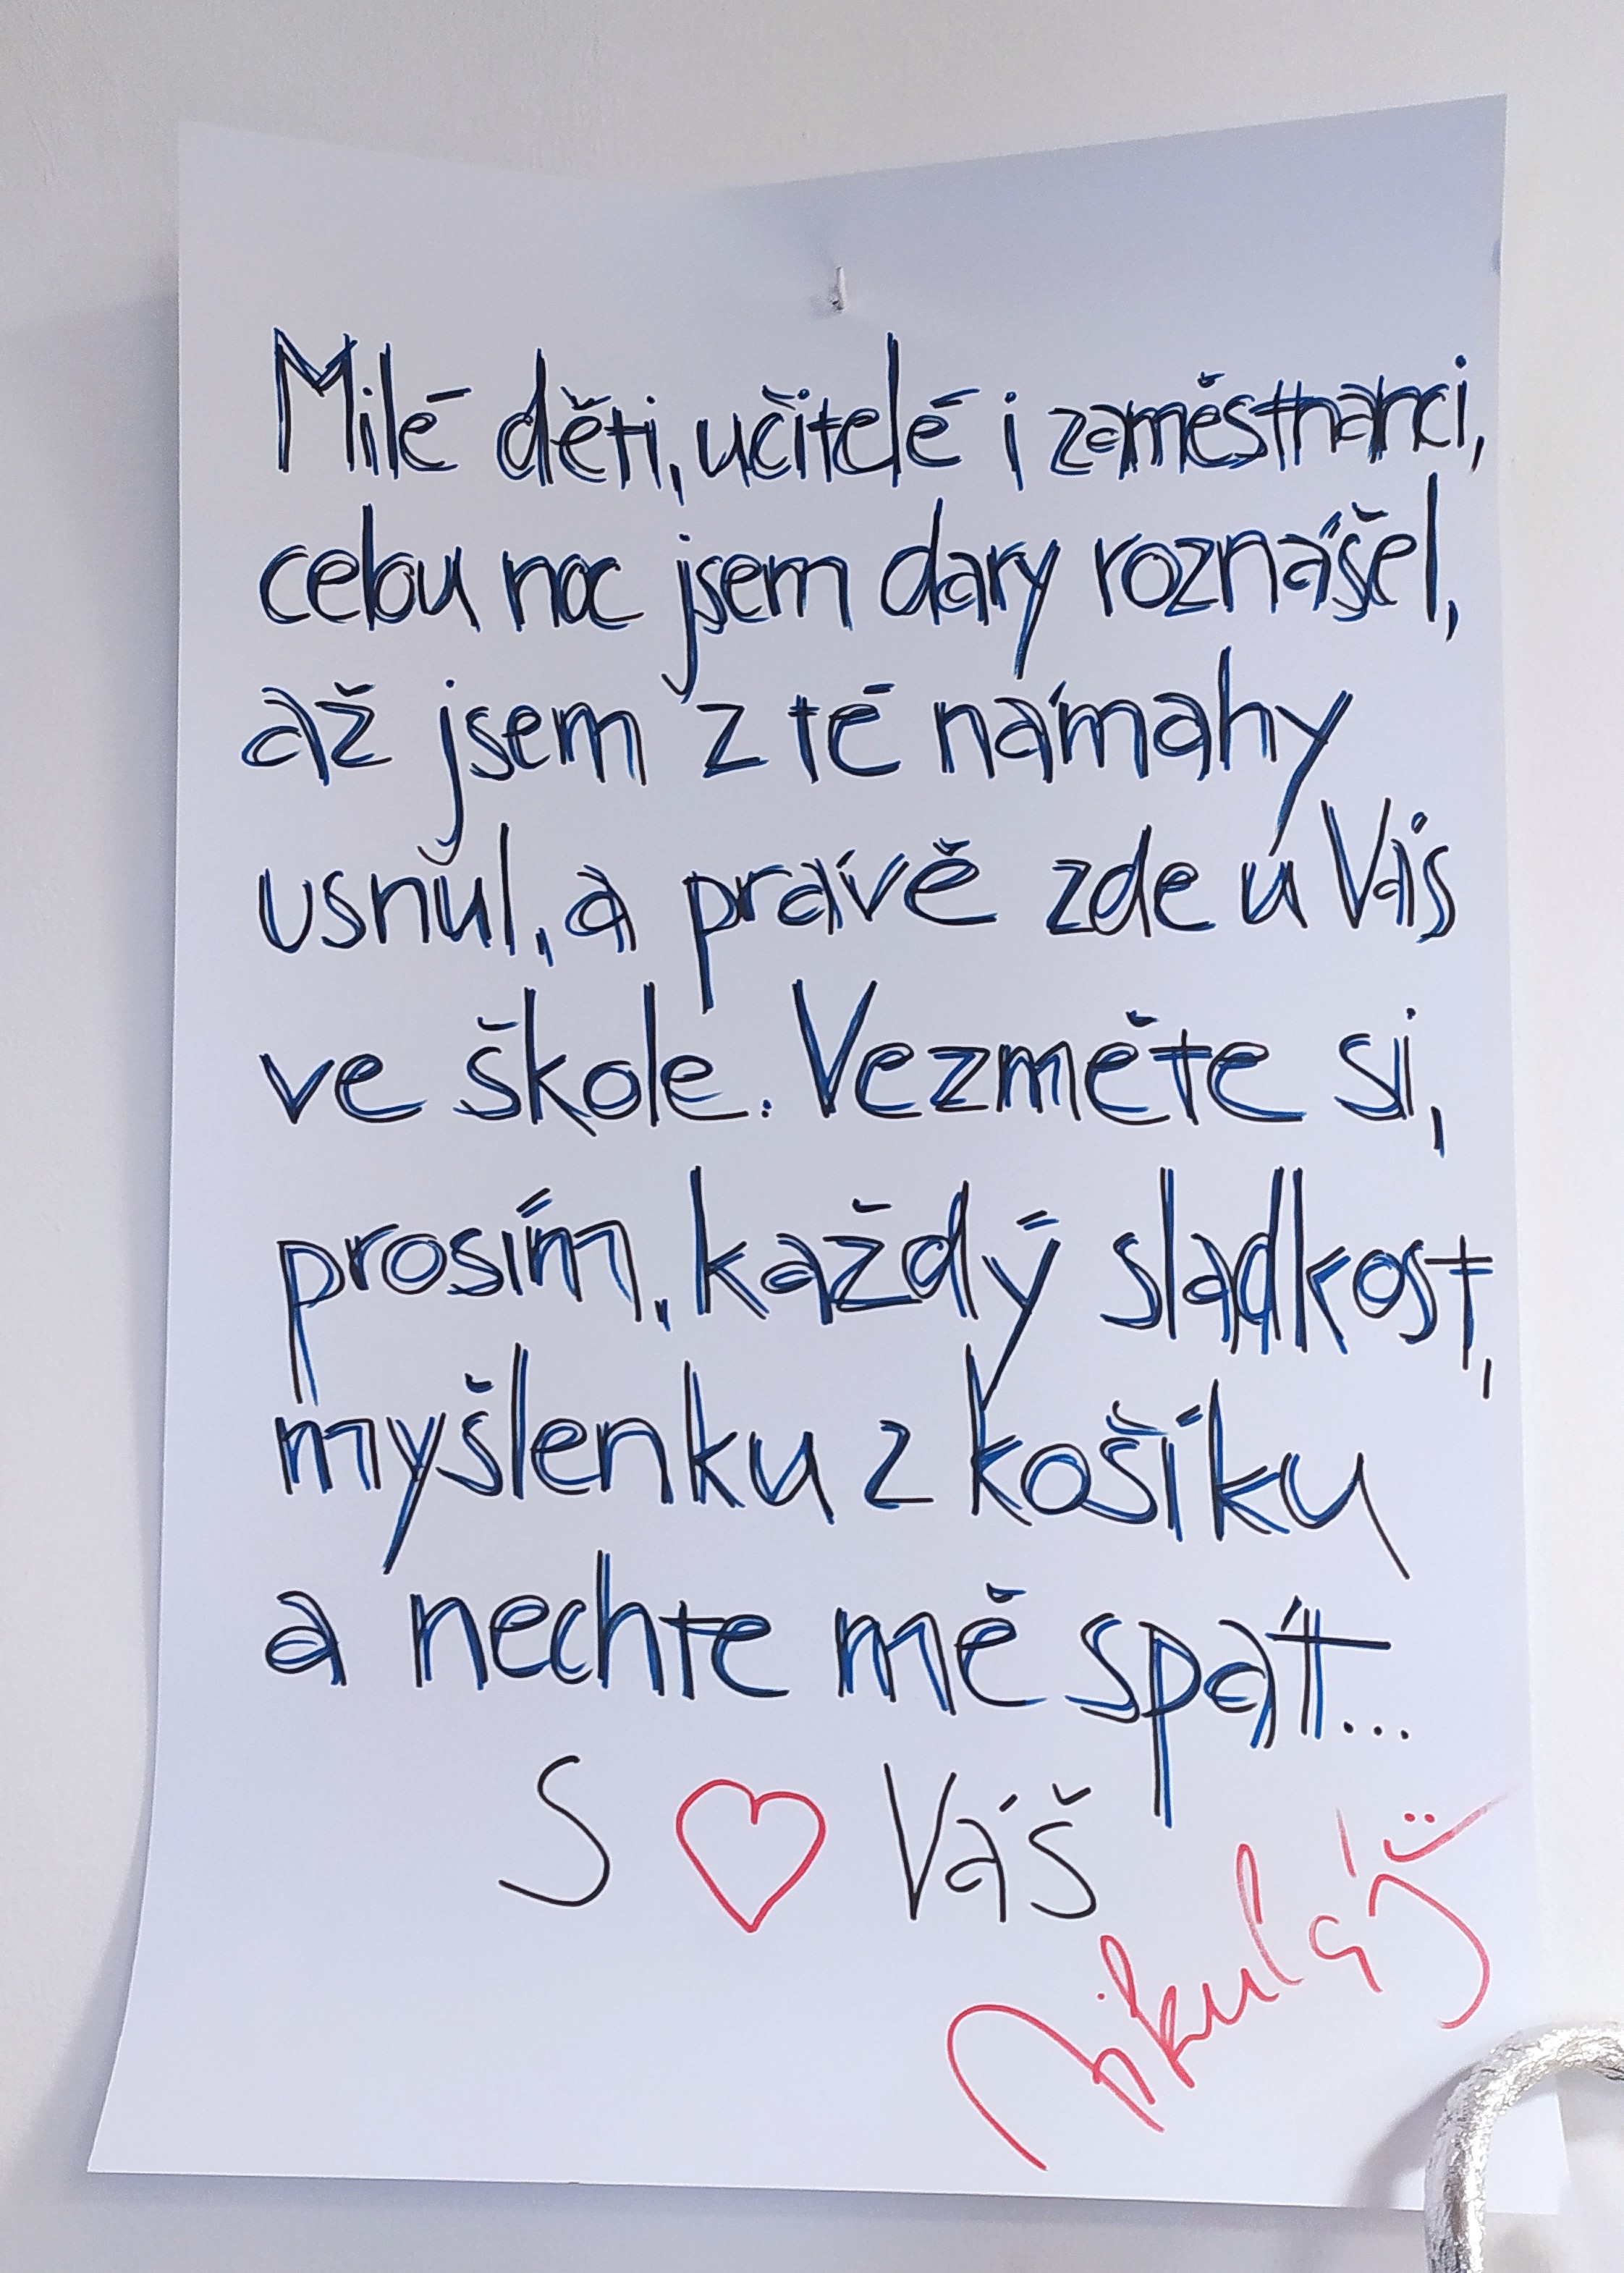 Milé děti, učitelé i zaměstnanci,
celou noc jsem dary roznášel,
až jsem z té námahy
usnul, a právě zde u Vás
ve škole. Vezměte si,
prosím, každý sladkost,
myšlenku z košíku
a nechte mě spát...
S ♡ Váš
Mikuláš